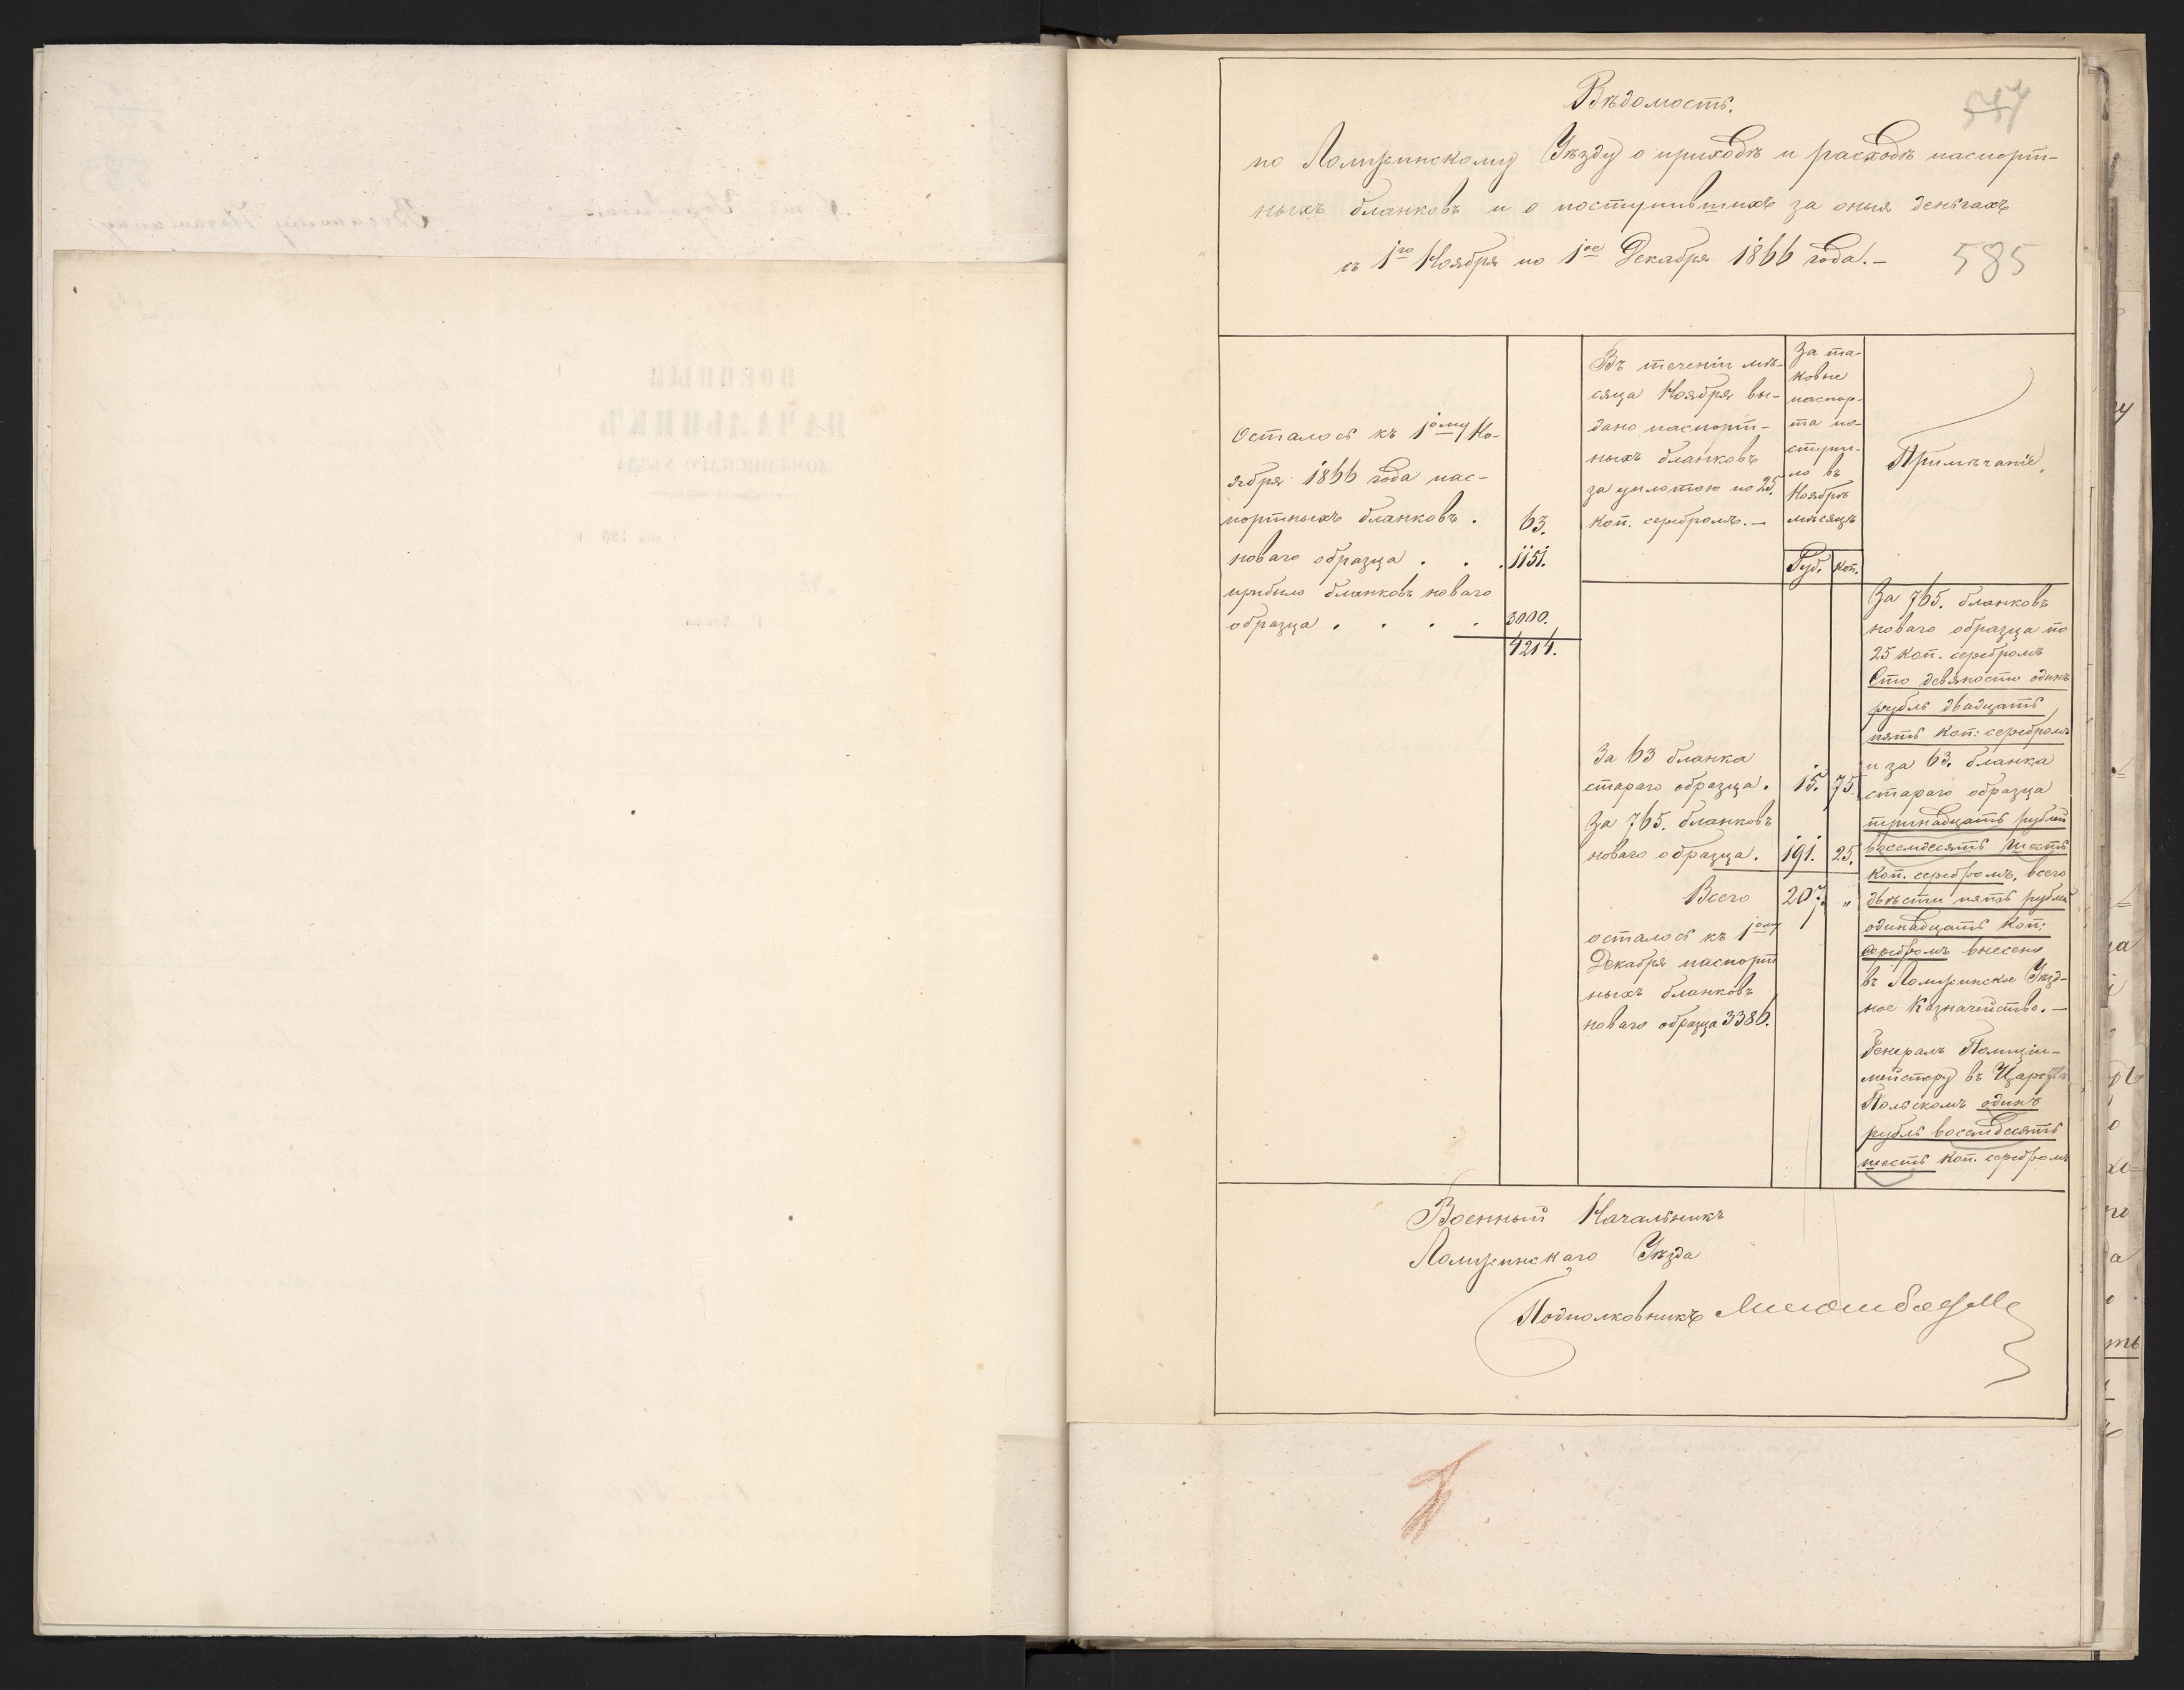 Вѣдомость.
по Ломжинскому Уѣзду о приходѣ и расходѣ паспорт-
ныхъ бланковъ и о поступившихъ за оныя деньгахъ
съ 1го Ноября по 1ое Декабря 1866 года.-
585
Осталось къ 1ому Но-
ября 1866 года пас-
портныхъ бланковъ . 63.
новаго образца . . . 1151.
прибыло бланковъ новаго
образца . . . . 3000.
4214.
Въ теченіи мѣ-
сяца Ноября вы-
дано паспорт-
ныхъ бланковъ
за уплатою по 25.
коп. серебромъ.-
За 63 бланка
стараго образца. 15. 75.
За 765. бланковъ
новаго образца. 191. 25.
Всего 207. "
осталось къ 1ому
Декабря паспорт
ныхъ бланковъ
новаго образца 3386.
За та-
ковые
паспор-
та по-
ступи-
ло въ
Ноябрѣ
мѣсяцѣ
Руб. Коп.
Примѣчаніе.
За 765. бланковъ
новаго образца по
25 коп. серебромъ
Сто девяносто одинъ
рубль двадцать
пять коп: серебромъ
и за 63. бланка
стараго образца
тринадцать рублей
восемдесятъ шесть
коп. серебромъ, всего
двѣсти пять рублей
одинадцать коп:
серебромъ внесены
въ Ломжинское Уѣзд-
ное Казначейство.-
Генералъ Полиціи-
мейстеру въ Царствѣ
Польскомъ одинъ
рубль восемдесятъ
шесть коп. серебромъ
Военный Начальникъ
Ломжинскаго Уѣзда
Подполковникъ